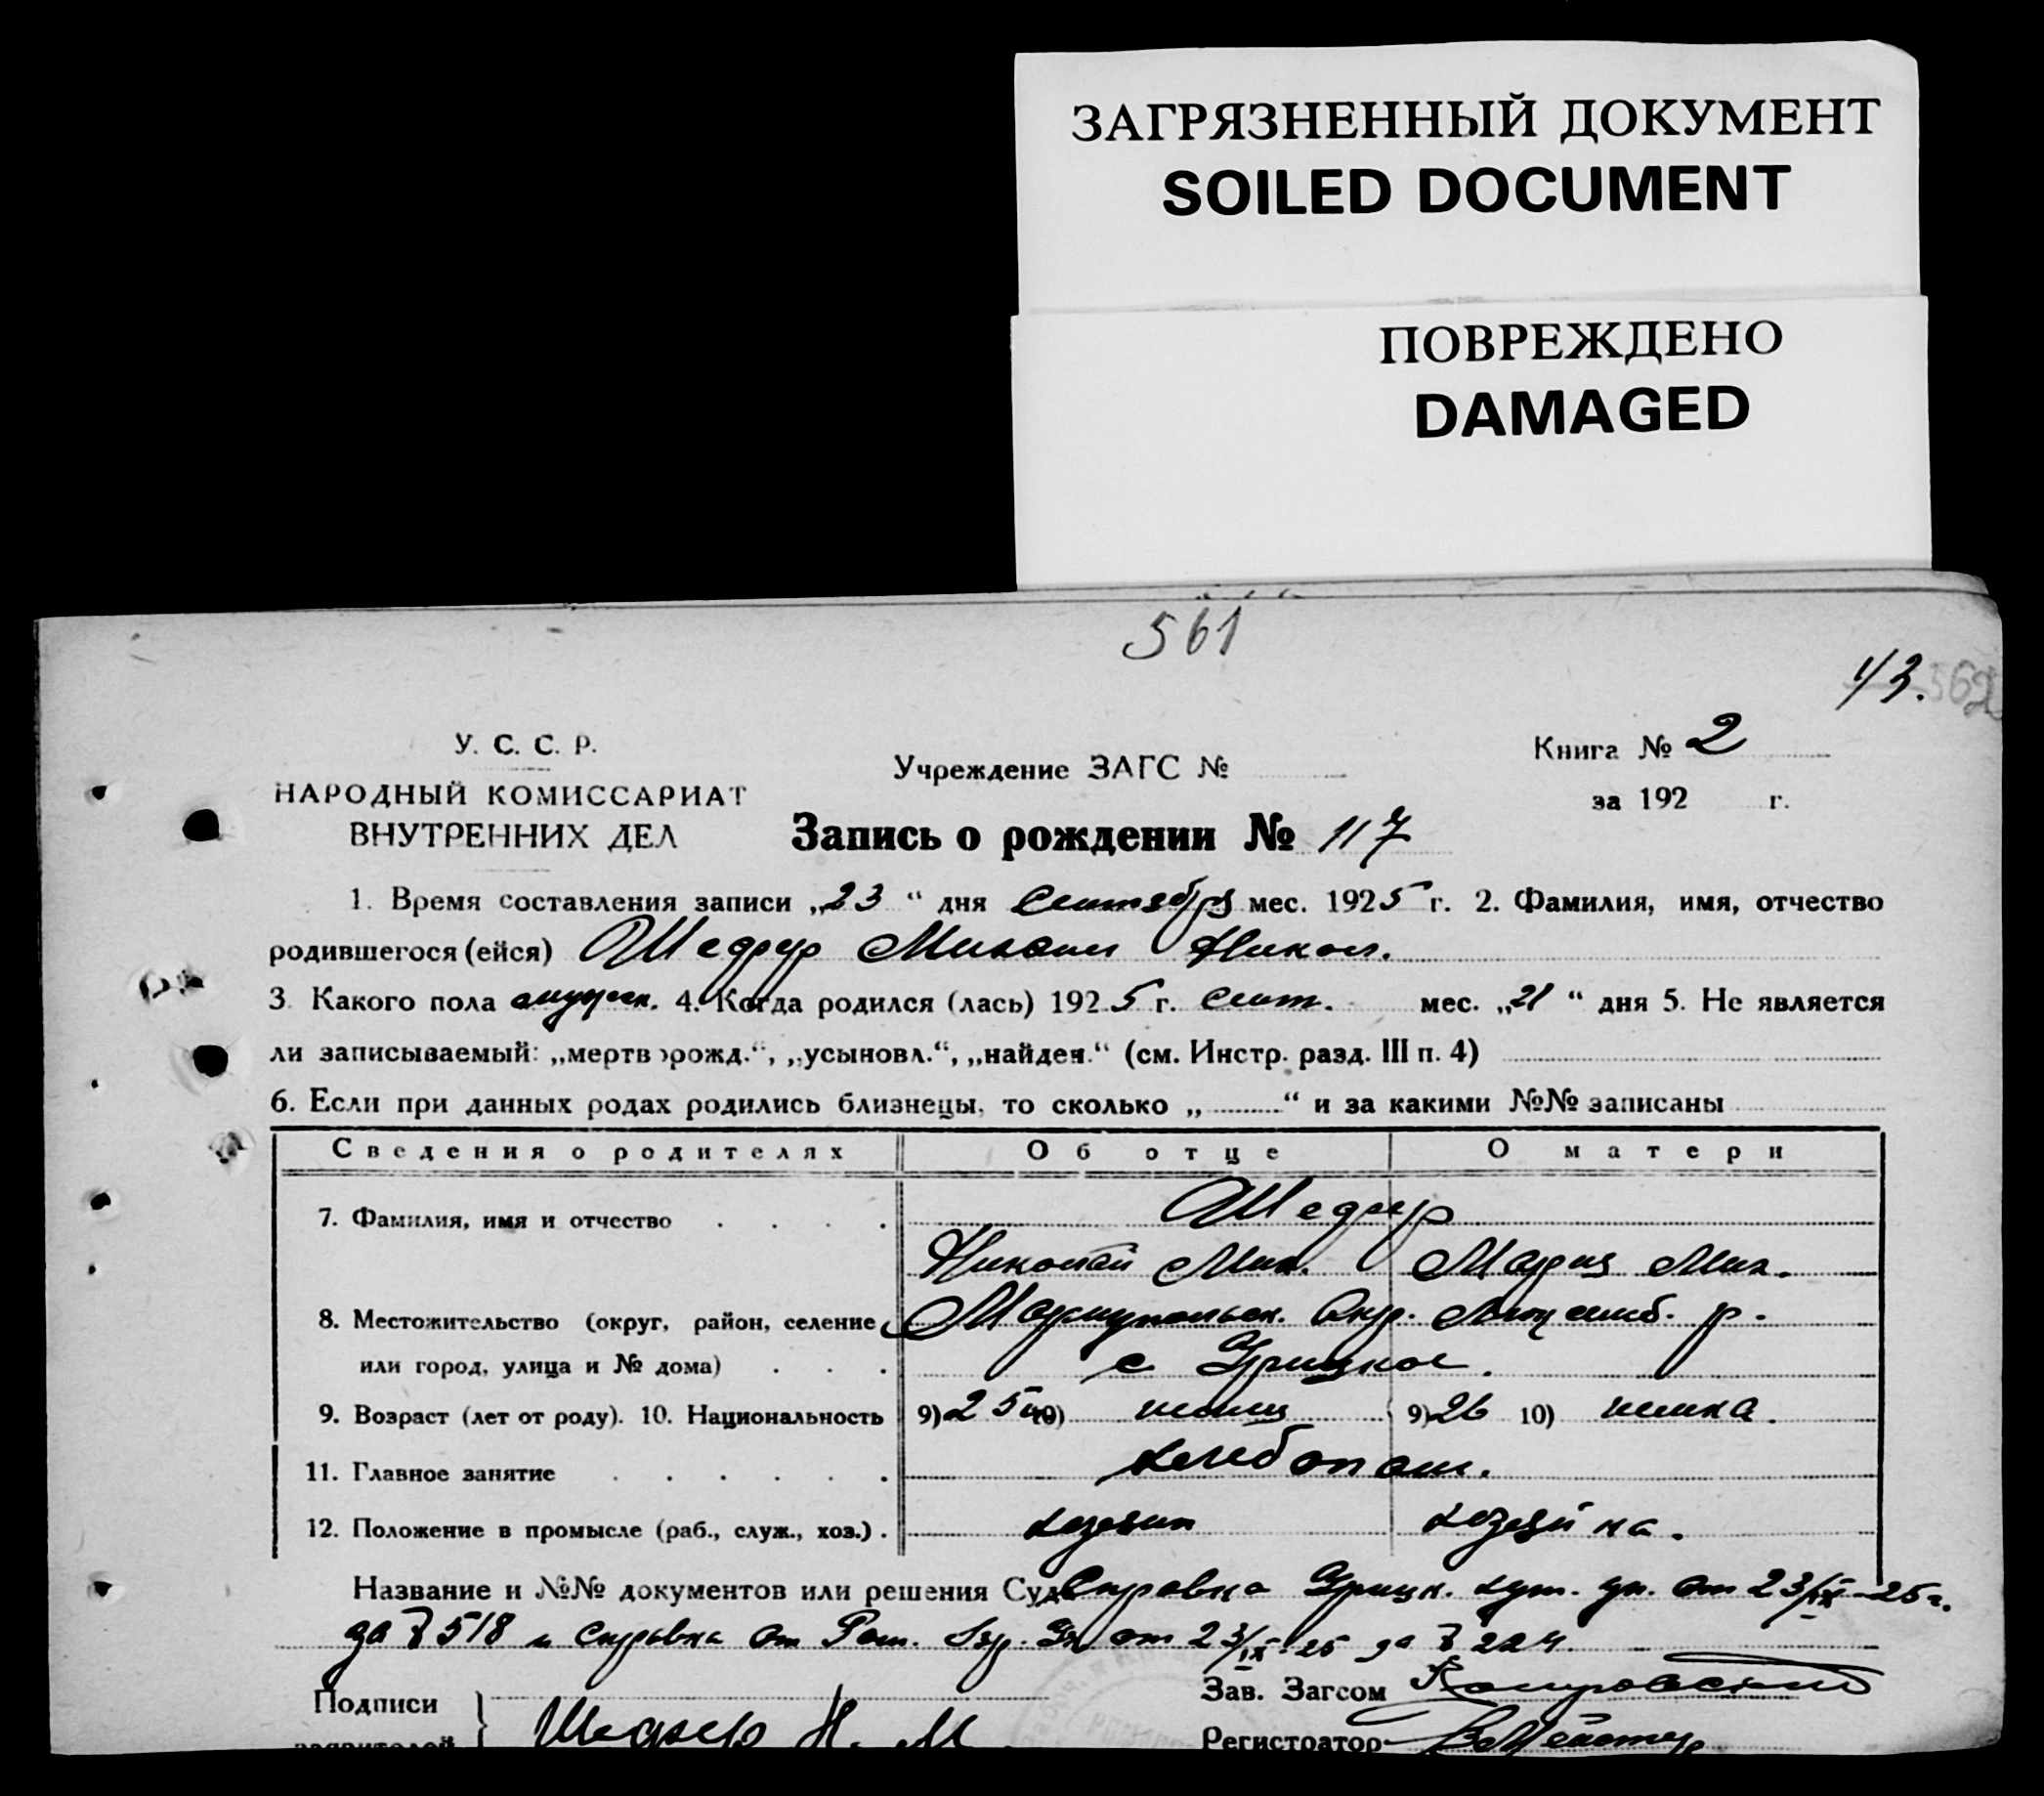 ЗАГРЯЗНЕННЫЙ ДОКУМЕНТ
SOILED DOCUMENT
ПОВРЕЖДЕНО
DAMAGED
561
43. 562
У. С. С. Р.
НАРОДНЫЙ КОМИССАРИАТ
ВНУТРЕННИХ ДЕЛ
Учреждение ЗАГС №
Книга № 2
за 192 г.
Запись о рождении № 117
1. Время составления записи „23“ дня Сентября мес. 1925 г. 2. Фамилия, имя, отчество
родившегося (ейся) Шедлер Михаил Никол.
3. Какого пола мужск. 4. Когда родился (лась) 1925 г. сент. мес. „21“ дня 5. Не является
ли записываемый: „мертворожд.“, „усыновл.“, „найден.“ (см. Инстр. разд. III п. 4)
6. Если при данных родах родились близнецы, то сколько „ “ и за какими №№ записаны
Сведения о родителях Об отце О матери
7. Фамилия, имя и отчество Шедлер
Николай Мих. Мария Мих.
8. Местожительство (округ, район, селение Мариупольск. Окр. р.
или город, улица и № дома) с. Урицкое.
9. Возраст (лет от роду). 10. Национальность 9) 25 10) немец 9) 26 10) немка.
11. Главное занятие хлебопаш.
12. Положение в промысле (раб., служ., хоз.) хозяин хозяйка.
Название и №№ документов или решения Суда Справка Урицк. от 23/IX-25г.
за № 518 и справка от 23/IX-25 за № 224
Подписи
заявителей } Шедлер Н. М.
Зав. Загсом
Регистратор